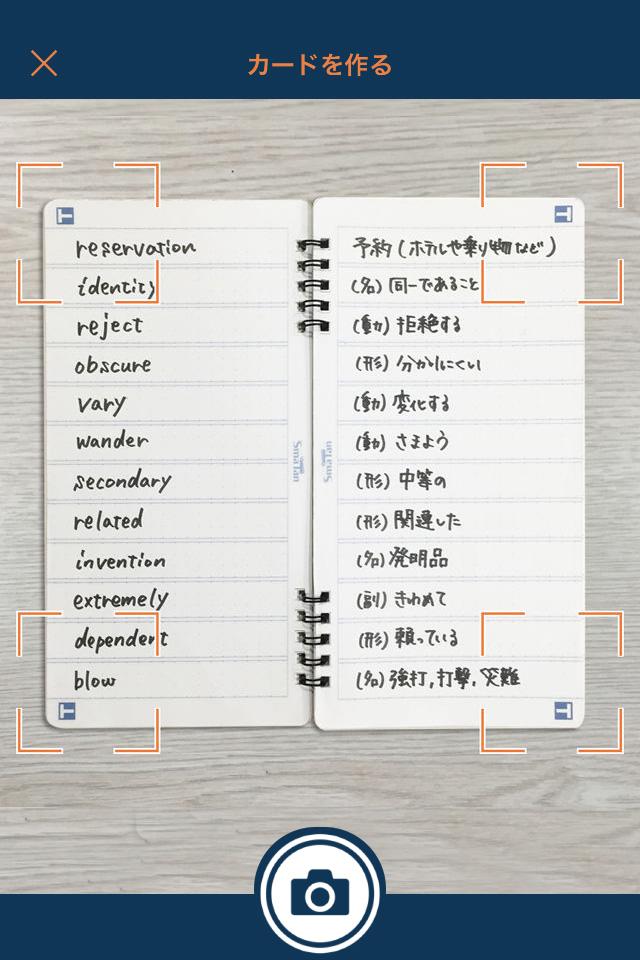 カードを作る
reservation
予約 (ホテルや乗り物など)
identity
(名) 同一であること
reject
(動) 拒絶する
obscure
(形) 分かりにくい
vary
(動) 変化する
wander
(動) さまよう
SmaTan
SmaTan
secondary
(形) 中等の
related
(形) 関連した
invention
(名) 発明品
extremely
(副) きわめて
dependent
(形) 頼っている
blow
(名) 強打, 打撃, 災難